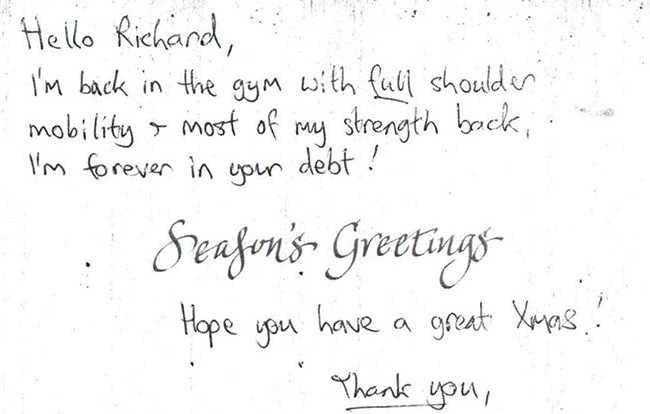 Hello Richard,
I'm back in the gym with full shoulder
mobility & most of my strength back,
I'm forever in your debt!
Season's Greetings
Hope you have a great Xmas!
Thank you,